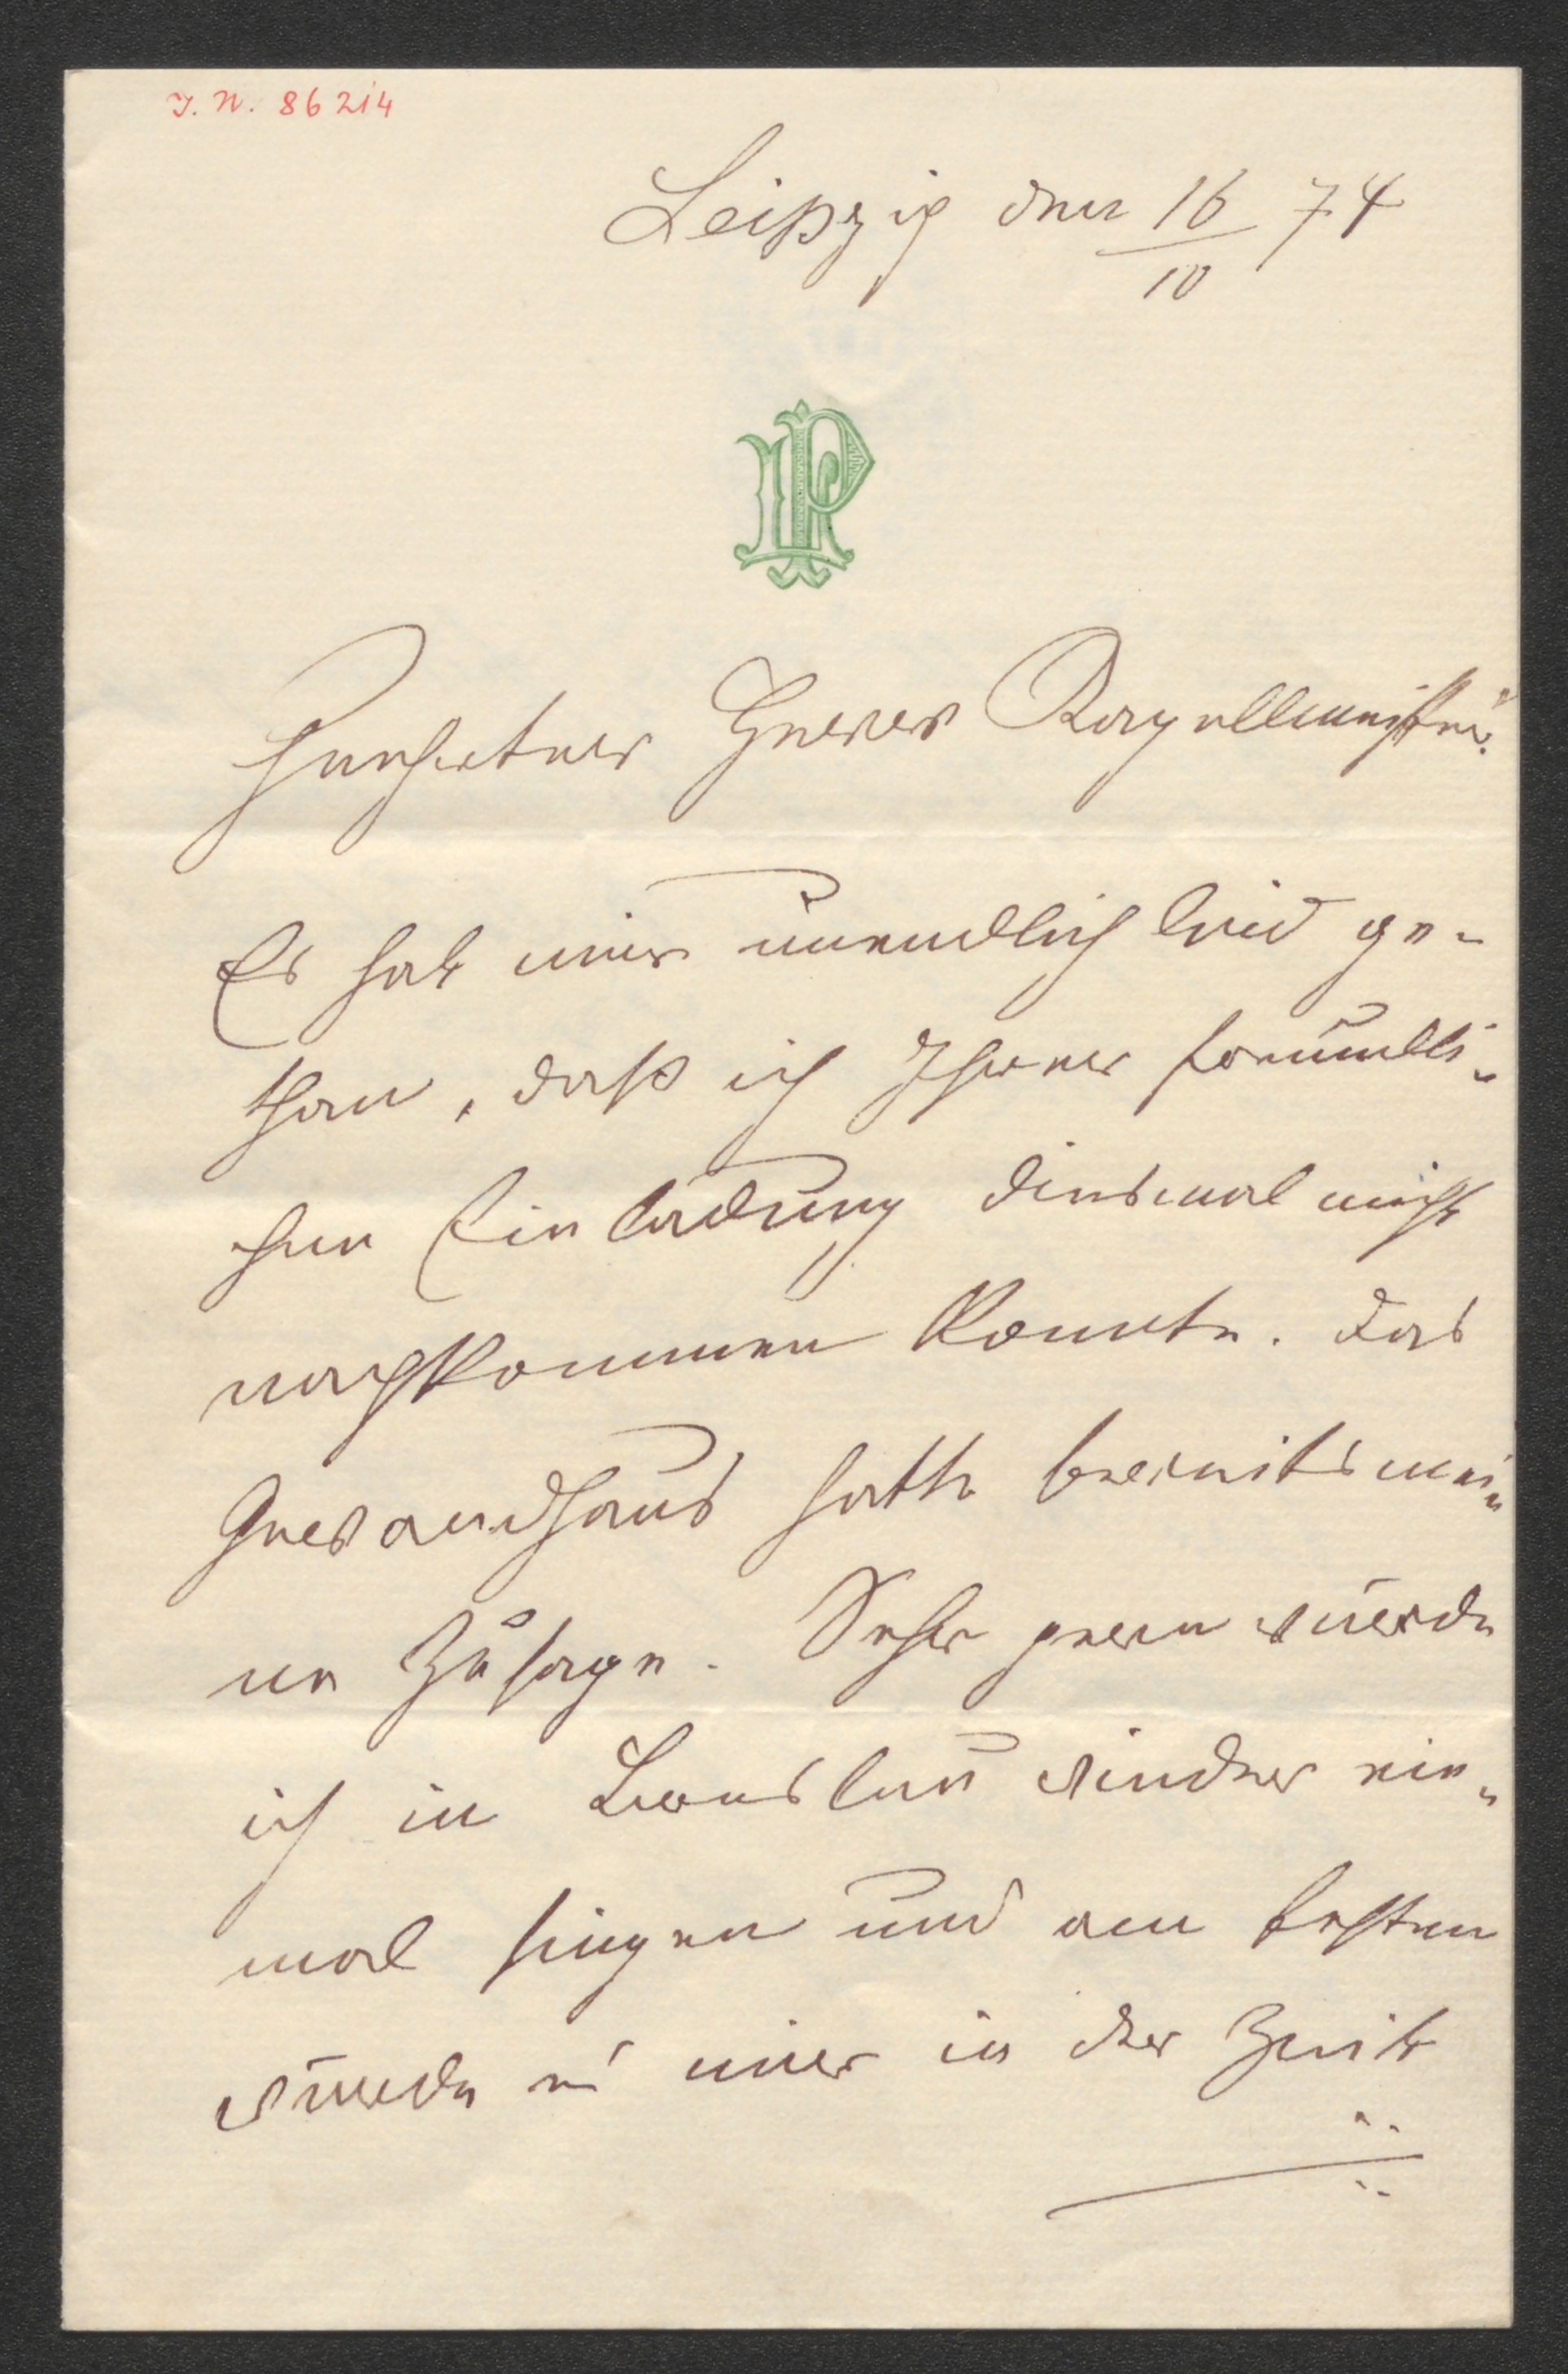 I. N. 86214
Leipzig den 16/10 74
LP
Geehrter Herr Kapellmeister.
Es hat mir unendlich leid ge-
than, daß ich Ihrer freundli-
chen Einladung diesmal nicht
nachkommen konnte. Das
Gewandhaus hatte bereits mei-
ne Zusage. Sehr gern würde
ich in Breslau wieder ein-
mal singen und am besten
würde es mir in der Zeit